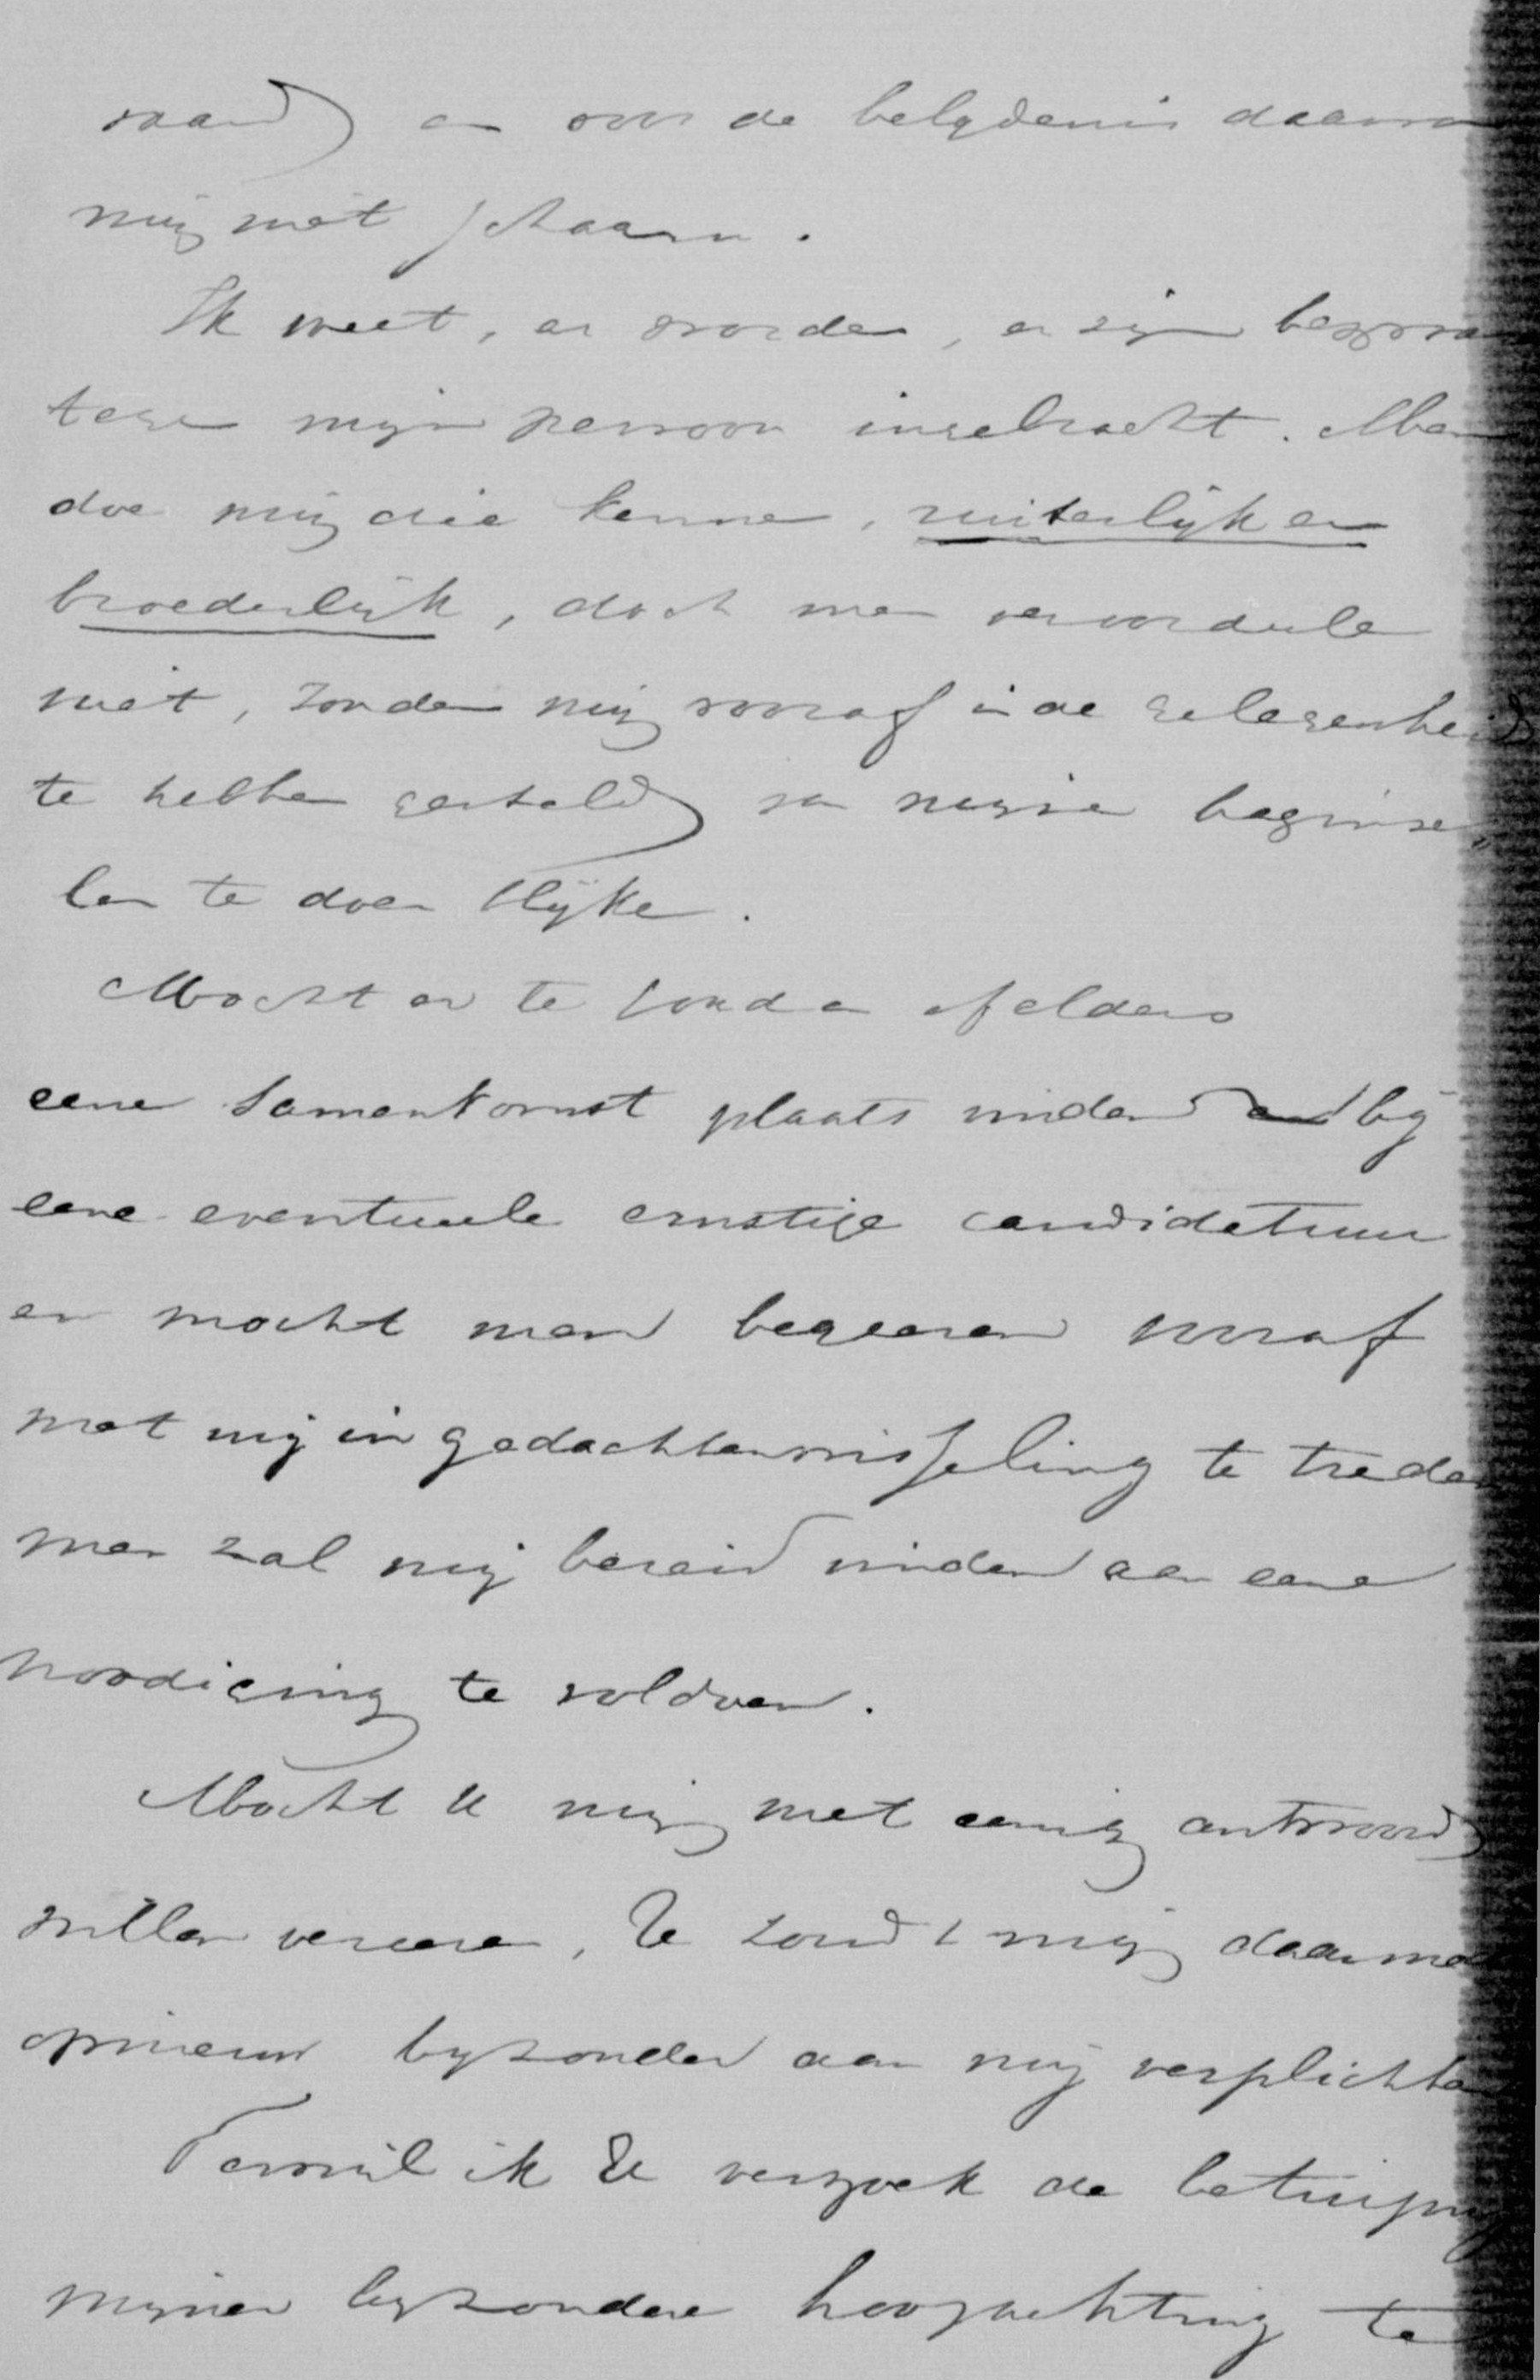 vaard en over de belydenis daarvan
mij niet schaam.
Ik weet, er worden, er zijn bezwaren
tegen mijn persoon ingebracht. Men
doe mij die kennen, ruiterlijk en
broederlijk, doch men veroordeele
niet, zonder mij vooraf in de gelegenheid
te hebben gesteld van mijne beginse„
len te doen blijken.
Mocht er te Gouda of elders
eene samenkomst plaats vinden bij
eene eventueele ernstige candidatuur
en mocht men begeeren vooraf
met mij in gedachtenwisseling te treden
men zal mij bereid vinden aan eene
noodiging te voldoen.
Mocht U mij met eenig antwoord
willen vereeren, U zoudt mij daarmede
opnieuw byzonder aan mij verplichten
Terwijl ik U verzoek de betuiging
mijner byzondere hoogachting te